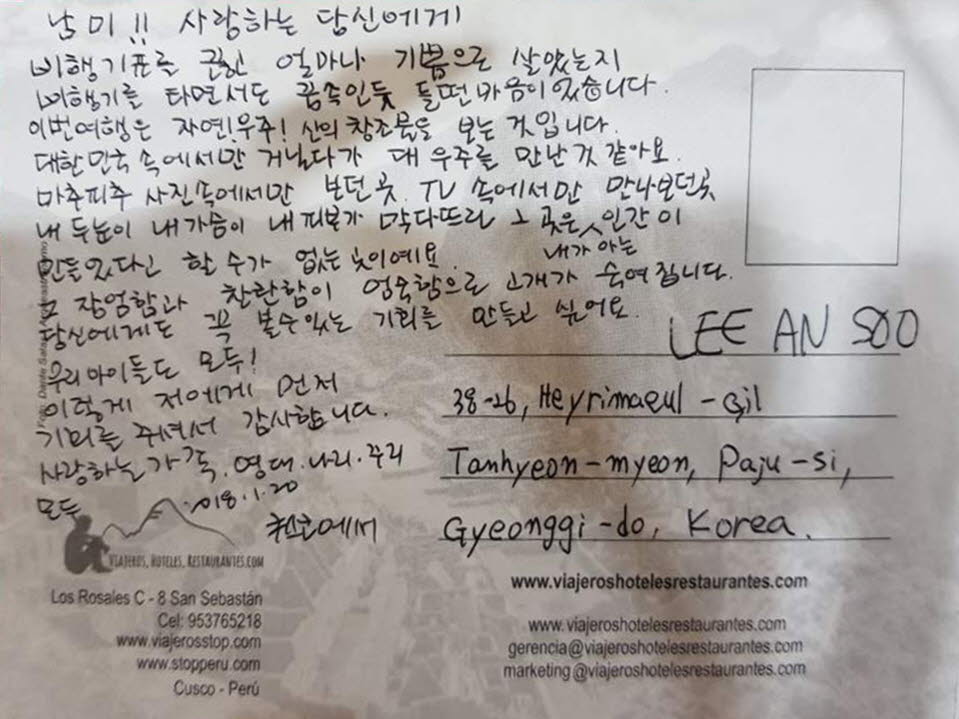 남미!! 사랑하는 당신에게
비행기표를 끊고 얼마나 기쁨으로 살았는지
비행기를 타면서도 꿈속인듯 들떤 마음이 있습니다.
이번여행은 자연!우주! 신의 창조물을 보는 것입니다.
대한민국 속에서만 거닐다가 대 우주를 만난것 같아요.
마추피추 사진속에서만 보던 곳. TV 속에서만 만나보던곳
내 두눈이 내 가슴이 내 피부가 막다뜨린 그 곳은 인간이
내가 아는
만들었다고 할 수가 없는 낯이예요.
그 장엄함과 찬란함이 엄숙함으로 고개가 숙여집니다.
당신에게도 꼭 볼수있는 기회를 만들고 싶어요.
우리아이들도 모두!
이렇게 저에게 먼저
기회를 줘서 감사합니다.
사랑하는 가족. 영대. 나리. 주리
모두
2018.1.20
에서
LEE AN SOO
38-26, Heyrimaeul-Gil
Tanhyeon-myeon, Paju-si,
Gyeonggi-do, Korea.
VIAJEROS, HOTELES, RESTAURANTES.COM
Los Rosales C - 8 San Sebastán
Cel: 953765218
www.viajerosstop.com
www.stopperu.com
Cusco - Perú
www.viajeroshotelesrestaurantes.com
www. viajeroshotelesrestaurantes.com
gerencia@viajeroshotelesrestaurantes.com
marketing@viajeroshotelesrestaurantes.com